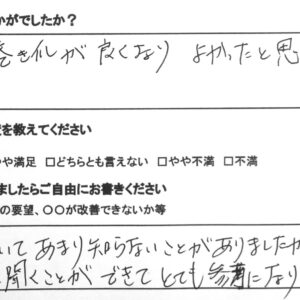 かがでしたか?
が 良くなり よかったと思
を教えてください
や満足 □どちらとも言えない □やや不満 □不満
ましたらご自由にお書きください
の要望、〇〇が改善できないか等
いて あまり知らないことがありましたが
聞くことが できて とても 参考になり